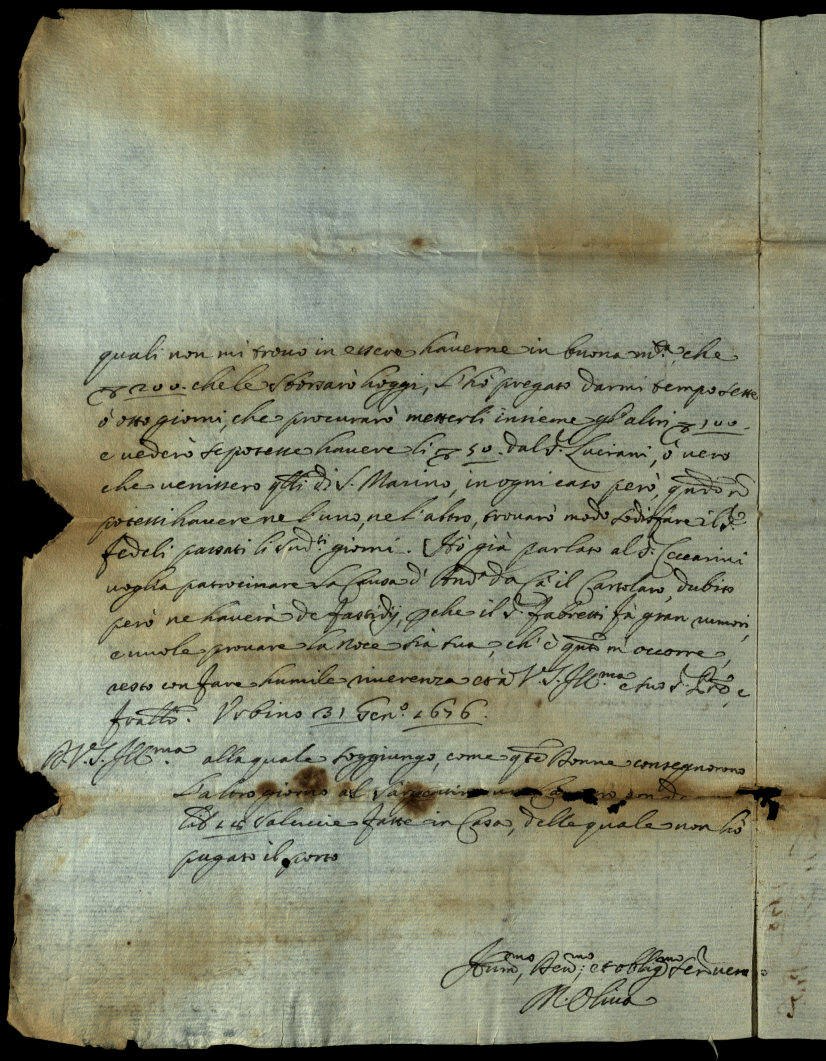 quali non mi trovo in essere haverne in buona m.ta che
200. che le sborsarò hoggi, l'hò pregato darmi tempo sette
ò otto giorni, che procurarò metterli insieme gl'altri 100.
e vederò se potesse havere li 50. dal S.r Luciani, ò vero
che venissero q̃lli di S. Marino, in ogni caso però, q̃ndo nõ
potessi havere ne l'uno, ne l'altro, trovarò modo sodisfare il S.r
Fedeli passati li sud.ti giorni. Hò già parlato al S.r Ceccarini
voglia patrocinare la Causa d' And.a da Cà il Cartolaro, dubito
però ne haverà de fastidij, p̃che il S.r Fabretti fà gran rumori,
e vuole provare la noce sia sua, ch'è q̃nto m'occorre,
resto con fare humile riverenza et à V.S. Ill.ma e suo S.r e
fratt.o. Urbino 31 Gen.o 1676.
A V.S. Ill.ma alla quale soggiungo, come q̃ste Donne consegnorono
l'altro giorno al
lib salsiccie fatte in Casa, delle quale non hò
pagato il porto
Hum.mo, Dev.mo, et oblig.mo Ser.r vero
M. Oliva